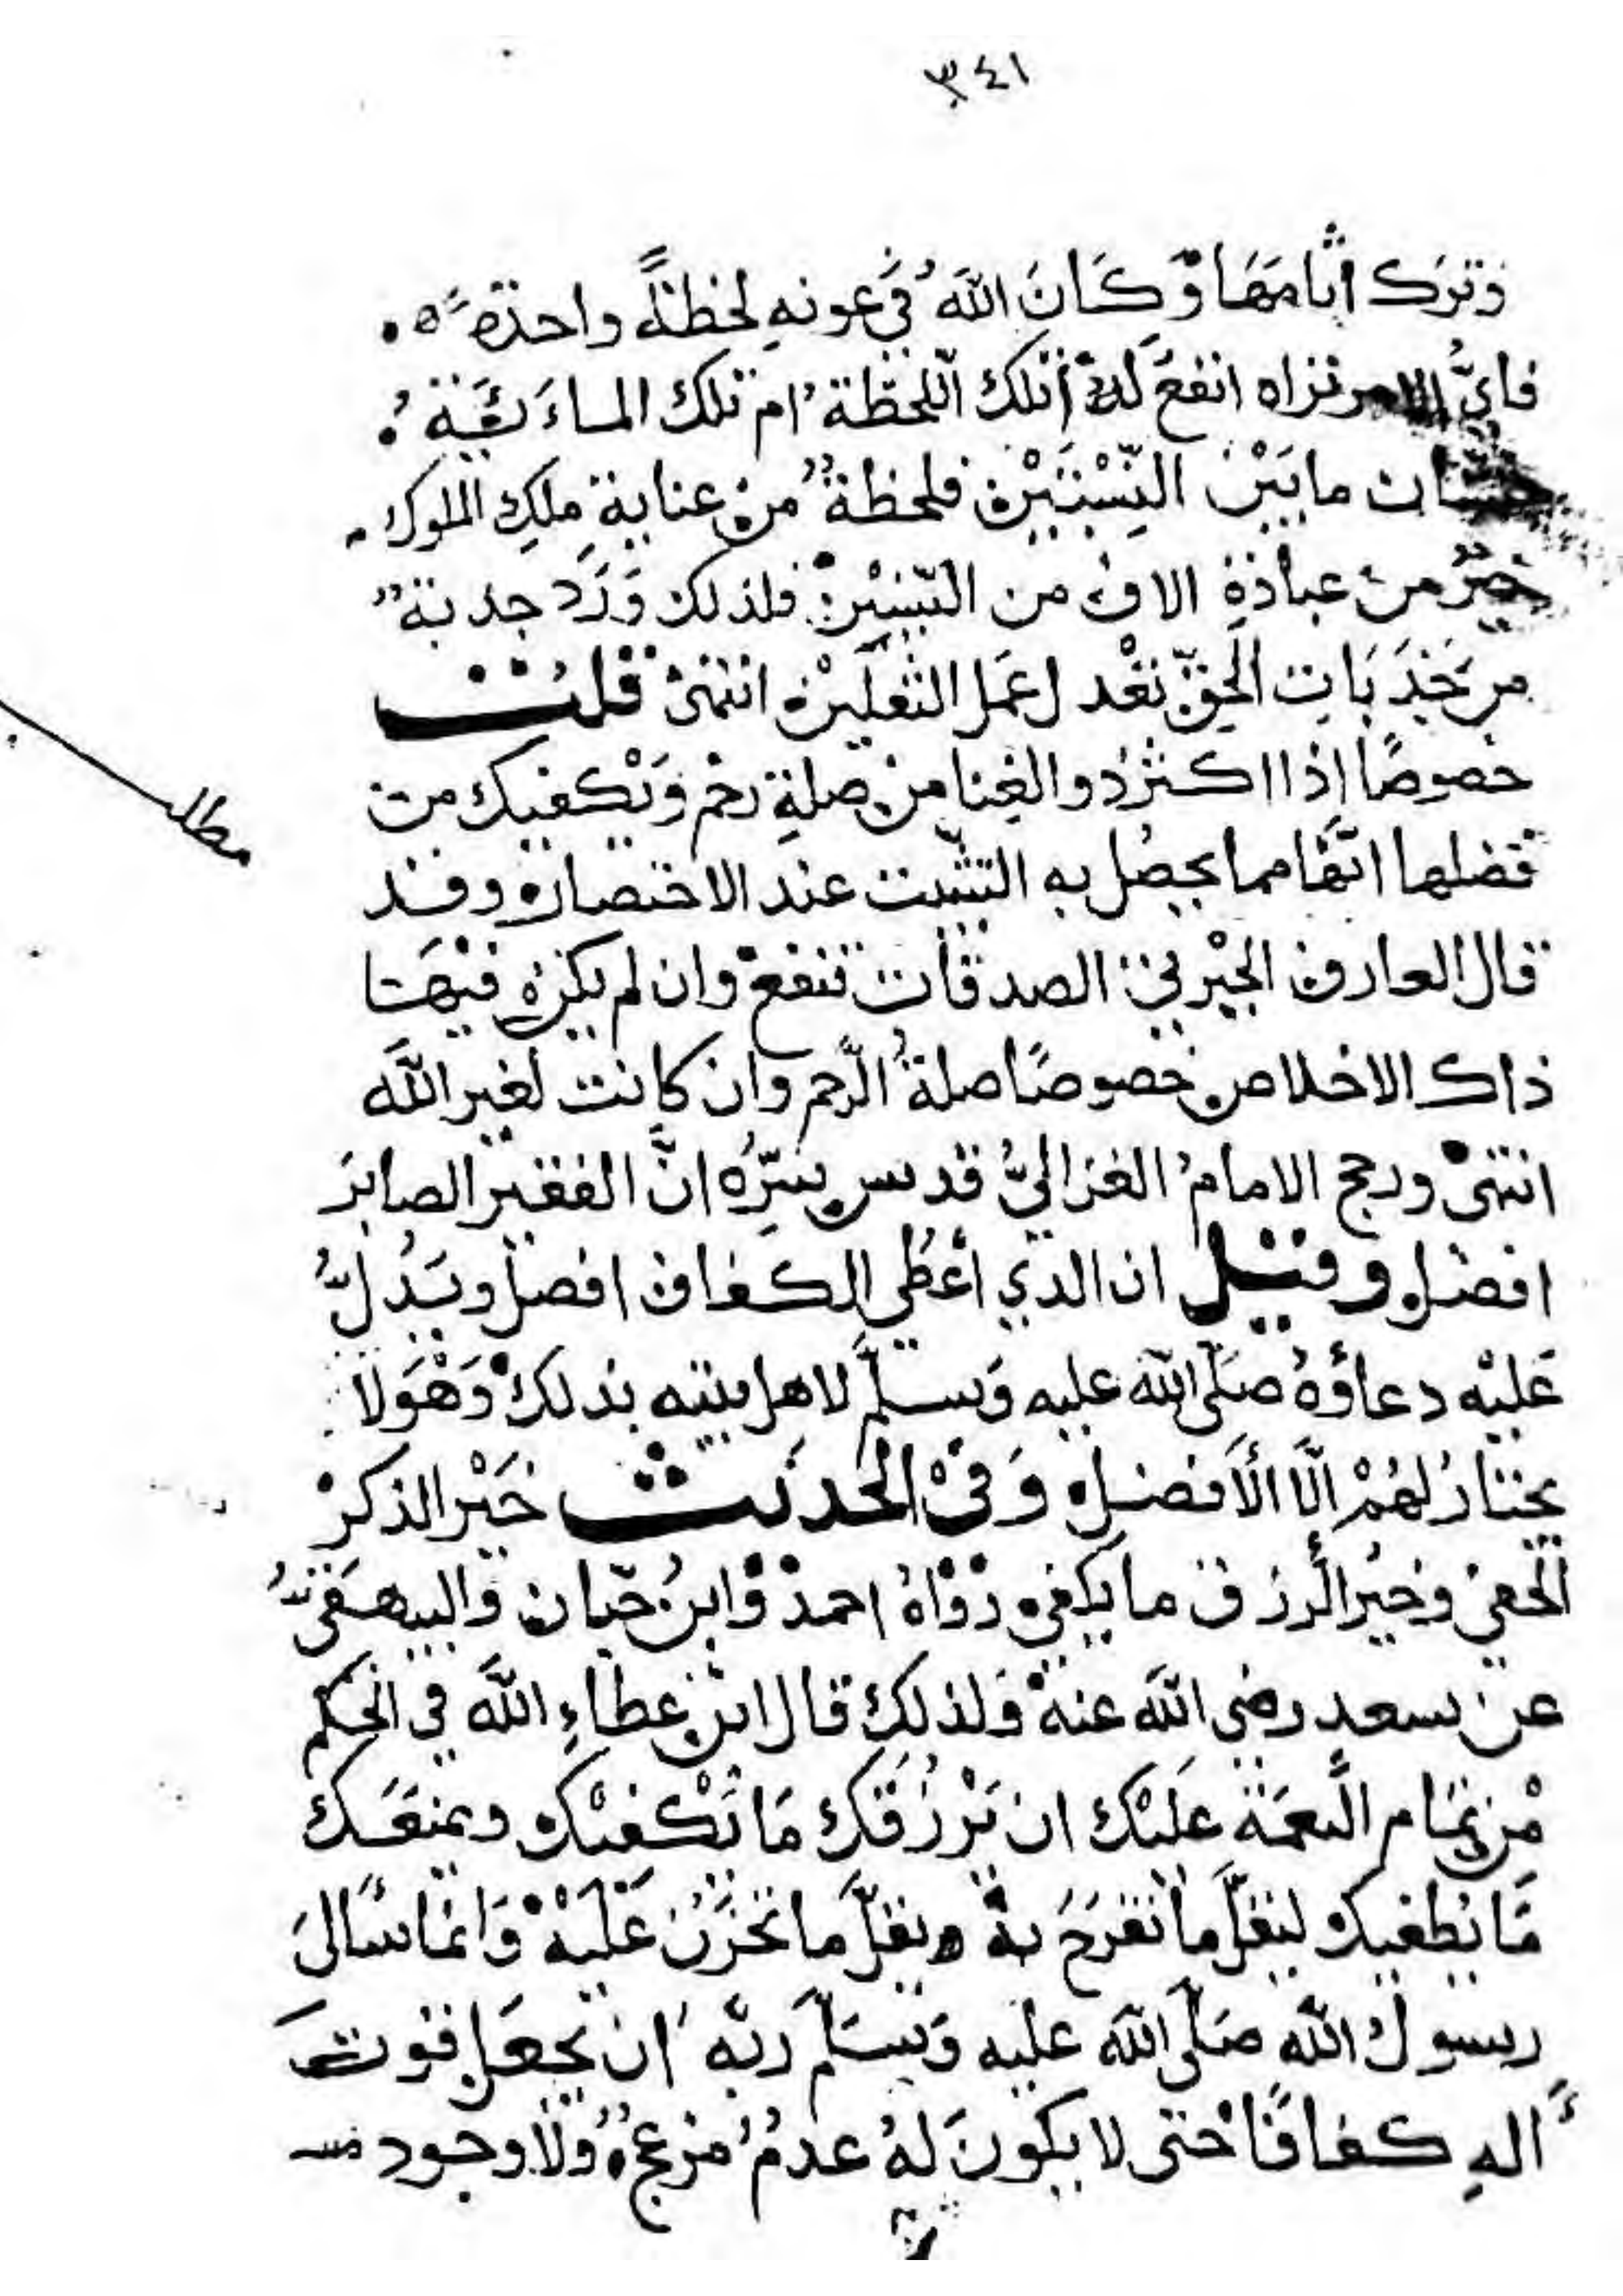 ٣٤١
وَترَك أيامَهَا وَكَانَ اللهُ في عونهِ لحظةً واحدةً ٥ .
فايُّ الامر تراه انفعَ لهُ أتلك اللحظة ام تلك الماءَ سَنَة .
شتان ما بَيْنَ النِّسْبَتَيْن فلحظة من عناية ملكِ الملوك
خيرٌ من عبادةِ الاف من السّنِيْن فلذلك وَرَد جدبة
من جَذَبَاتِ الحقّ تعْدل عمَل الثقلَيْن انتهى قلت
خصوصًا اذا اكثر ذو الغِنا من صلةِ رحم وَيَكفيك من
فضلها انّها مما يحصُل به التثبيت عند الاحتضار وقد
قال العارف الجبْرتي الصدقات تنفع وان لم يكن فيهَا
ذاك الاخلاص خصوصًا صلةُ الرّحم وان كانت لغير اللهَ
انتهى ورجح الامامُ الغزاليُّ قدس سِرُّه انَّ الفقير الصابرَ
افضل وقيل ان الدي اعْطُي الكفاف افضل ويَدُلُّ
عَليْه دعاؤُهُ صَلّى اللهَ عليه وَسلّم لاهل بيته بذلك وَهْوَ لا
يختارُ لهُمْ الَّا الأفضل وَفيْ الحديث خَيْر الذكرْ
الخفي وخيُر الرزق ما يكفي رَوَاهُ احمد وَابنُ حبّان والبيهقي
عن سعد رضي اللهَ عنهُ وَلذلكِ قال ابن عطاءِ اللهَ في الحِكم
مْن تمَام النعمَة علَيْك ان يَرْزُقَك مَا يَكْفيْك ويمنعَك
مَا يُطغيك ليقلَّ ما تَفرَحَ به ويقلَّ ما تَحْزَن عَلَيْهْ وَانما سَالَ
رسول الله صَلّى اللهَ عليه وَسَلّم ربّه ان يجعَل قوت
اله كفافًا حتى لا يكونَ لهُ عدمُ مزعج ولا وجود
مطلب